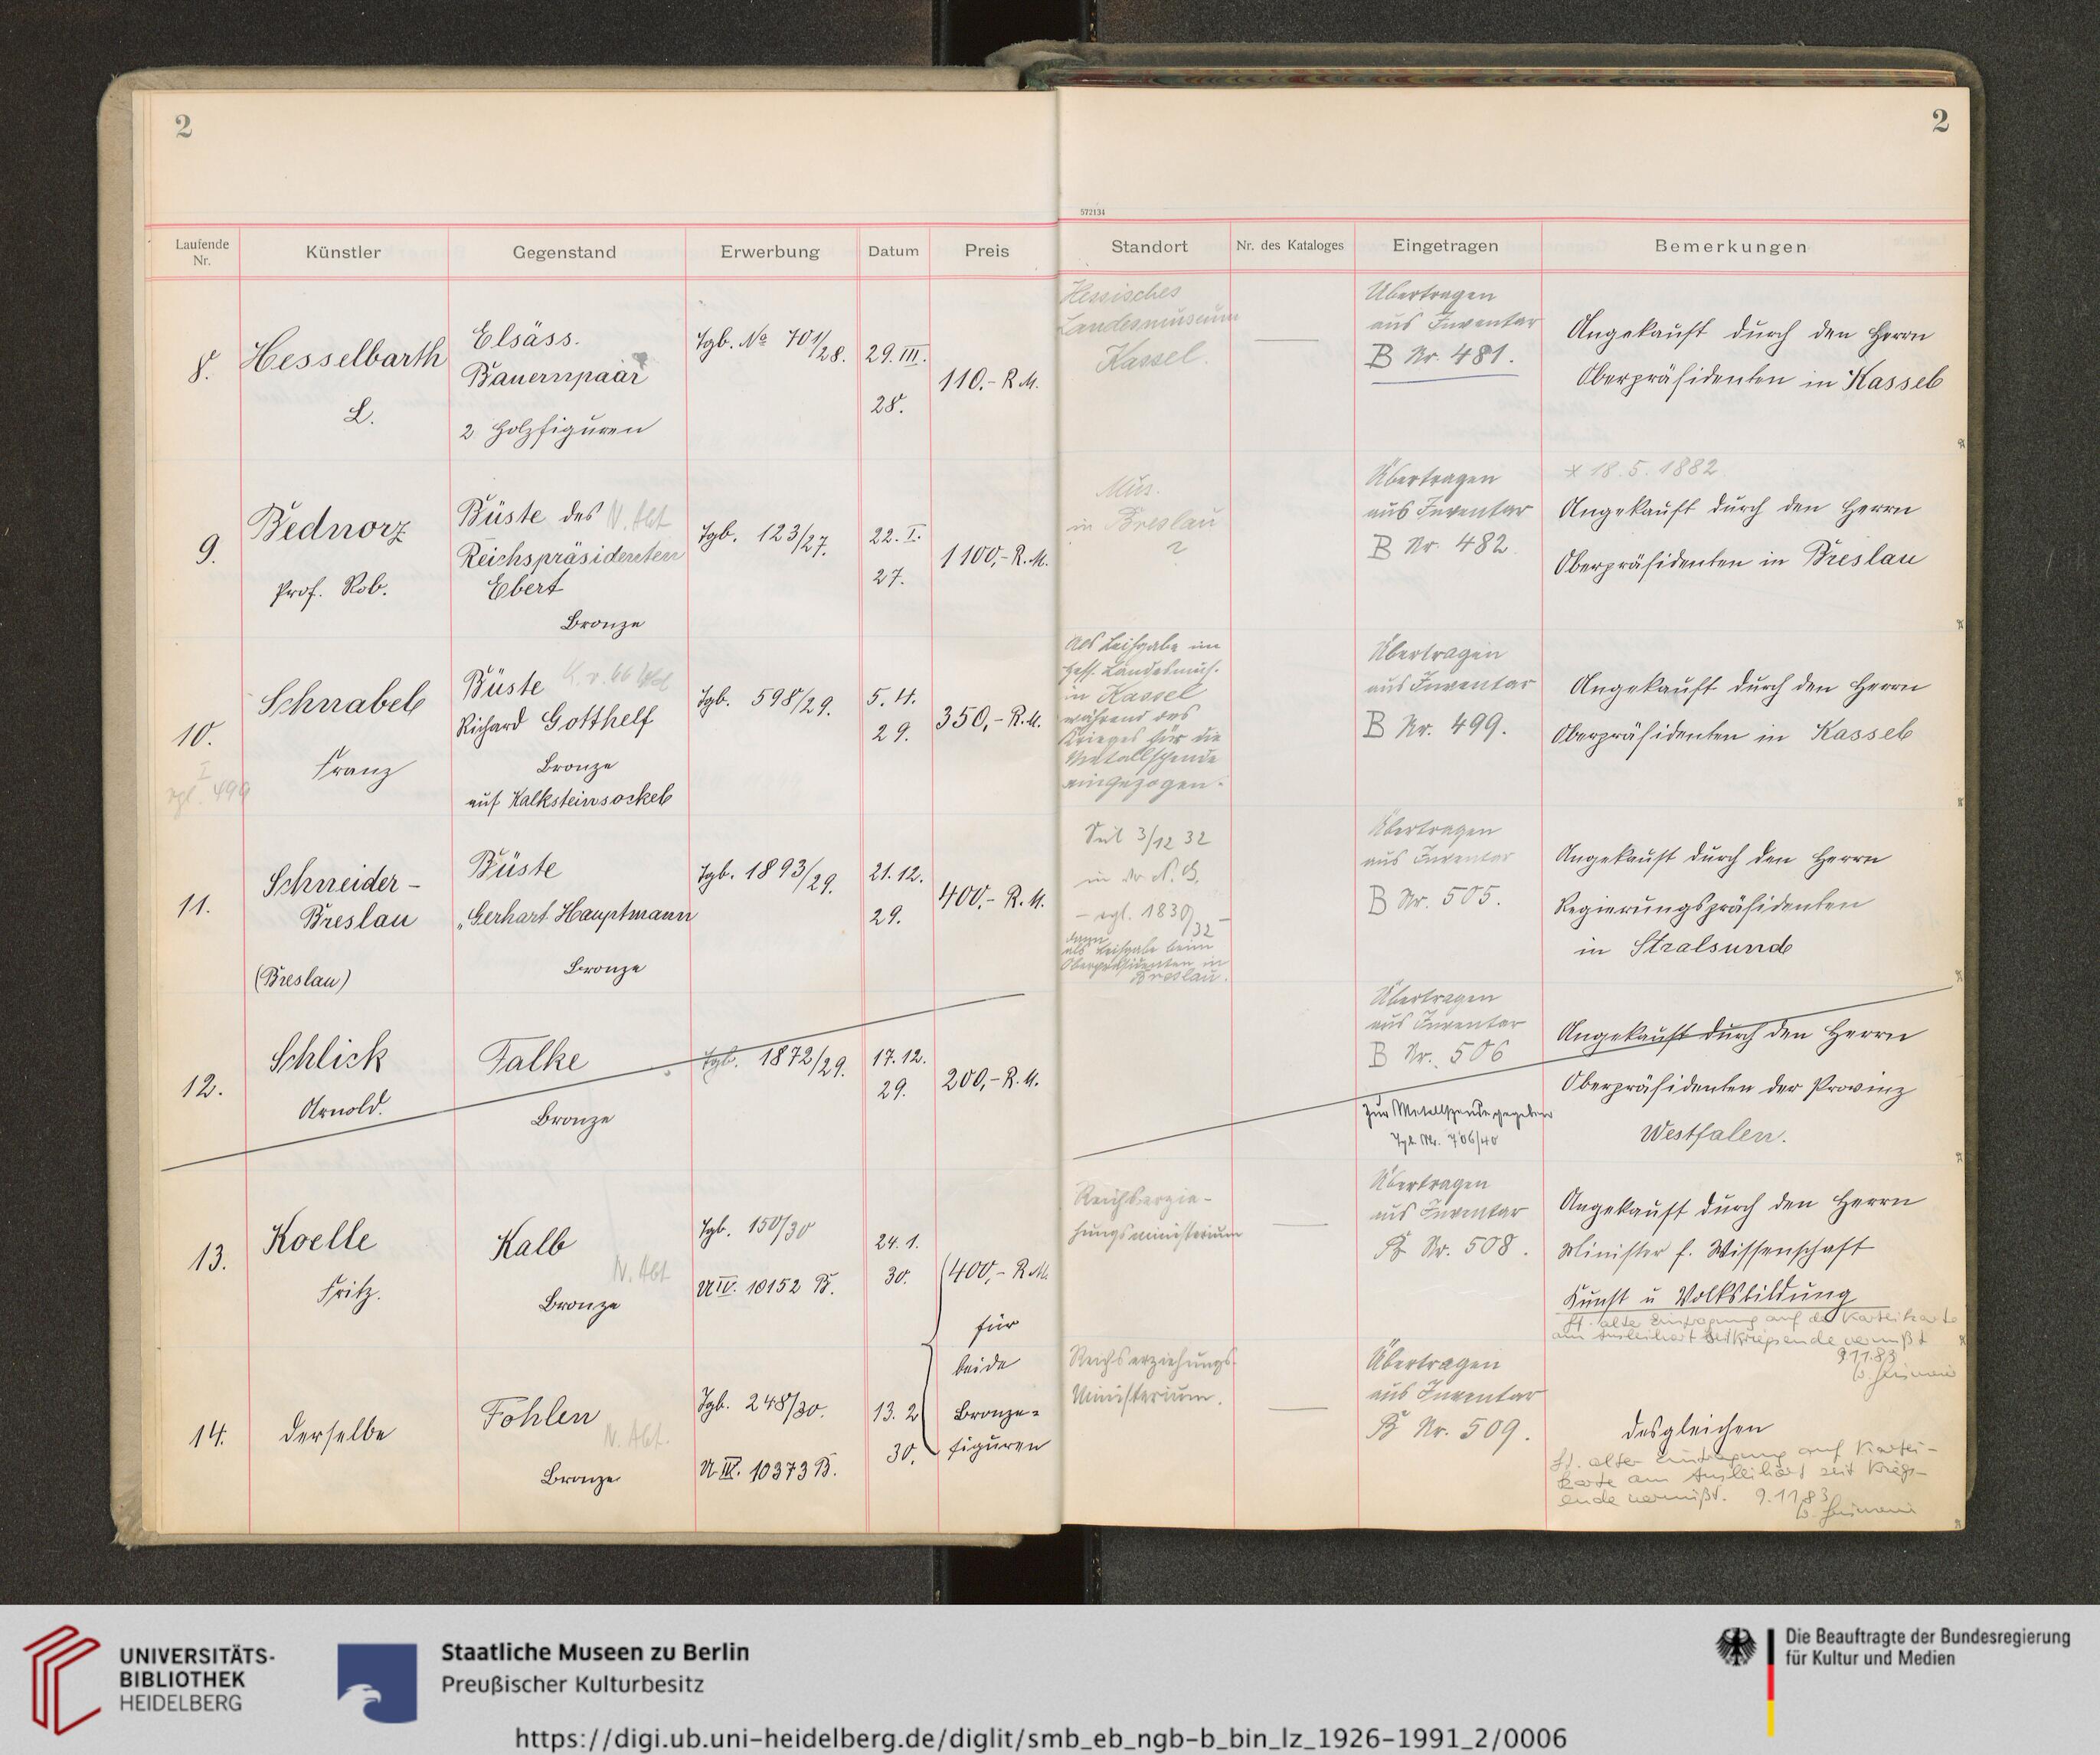 2
2
572134
Laufende Nr.
Künstler
Gegenstand
Erwerbung
Datum
Preis
Standort
Nr. des Kataloges
Eingetragen
Bemerkungen
8.
Hesselbarth
L.
Elsäss.
Bauernpaar
2 Holzfiguren
Tgb. No 701/28.
29. III.
28.
110,- R.M.
Hessisches
Landesmuseum
Kassel.
Übertragen
aus Inventar
B Nr. 481.
Angekauft durch den Herrn
Oberpräsidenten in Kassel
9.
Bednorz
Prof. Rob.
Büste des N. Abt
Reichspräsidenten
Ebert
Bronze
Tgb. 123/27.
22. I.
27.
1100,- R.M.
Mus.
in Breslau
?
Übertragen
aus Inventar
B Nr. 482
* 18. 5. 1882
Angekauft durch den Herrn
Oberpräsidenten in Breslau
10.
vgl. I 499
Schnabel
Franz
Büste
Richard Gotthelf
Bronze
auf Kalksteinsockel
Tgb. 598/29.
5. 4.
29.
350,- R.M.
Als Leihgabe im
Hess. Landesmus.
in Kassel
während des
Krieges für die
Metallspende
eingezogen.
Übertragen
aus Inventar
B Nr. 499.
Angekauft durch den Herrn
Oberpräsidenten in Kassel
11.
Schneider -
Breslau
(Breslau)
Büste
"Gerhart Hauptmann
Bronze
Tgb. 1893/29.
21. 12.
29.
400,- R.M.
Seit 3/12 32
in der N. G.
- vgl. 1830/32 -
dann
als Leihgabe beim
Oberpräsidenten in
Breslau.
Übertragen
aus Inventar
B Nr. 505.
Angekauft durch den Herrn
Regierungspräsidenten
in Stralsund
12.
Schlick
Arnold.
Falke
Bronze
Tgb. 1872/29.
17. 12.
29.
200,- R.M.
Übertragen
aus Inventar
B Nr. 506
Zur Metallspende gegeben
Tgb. Nr. 706/40
Angekauft durch den Herrn
Oberpräsidenten der Provinz
Westfalen.
13.
Koelle
Fritz.
Kalb
N. Abt
Bronze
Tgb. 150/30
U IV. 10152 B.
24. 1.
30.
400,- R.M.
für
beide
Bronze=
figuren
Reichserzie-
hungsministerium
Übertragen
aus Inventar
B Nr. 508.
Angekauft durch den Herrn
Minister f. Wissenschaft
Kunst u Volksbildung
lt. alter Eintragung auf der Karteikarte
am Ausleihort seit Kriegsende vermißt
9.11.83
14.
derselbe
Fohlen
N. Abt.
Bronze
Tgb. 248/30.
U IV. 10373 B.
13. 2
30.
Reichserziehungs-
Ministerium.
Übertragen
aus Inventar
B Nr. 509.
desgleichen
lt. alter Eintragung auf Kartei-
karte am Ausleihort seit Kriegs-
ende vermißt. 9.11.83
UNIVERSITÄTS-
BIBLIOTHEK
HEIDELBERG
Staatliche Museen zu Berlin
Preußischer Kulturbesitz
Die Beauftragte der Bundesregierung
für Kultur und Medien
https://digi.ub.uni-heidelberg.de/diglit/smb_eb_ngb-b_bin_lz_1926-1991_2/0006